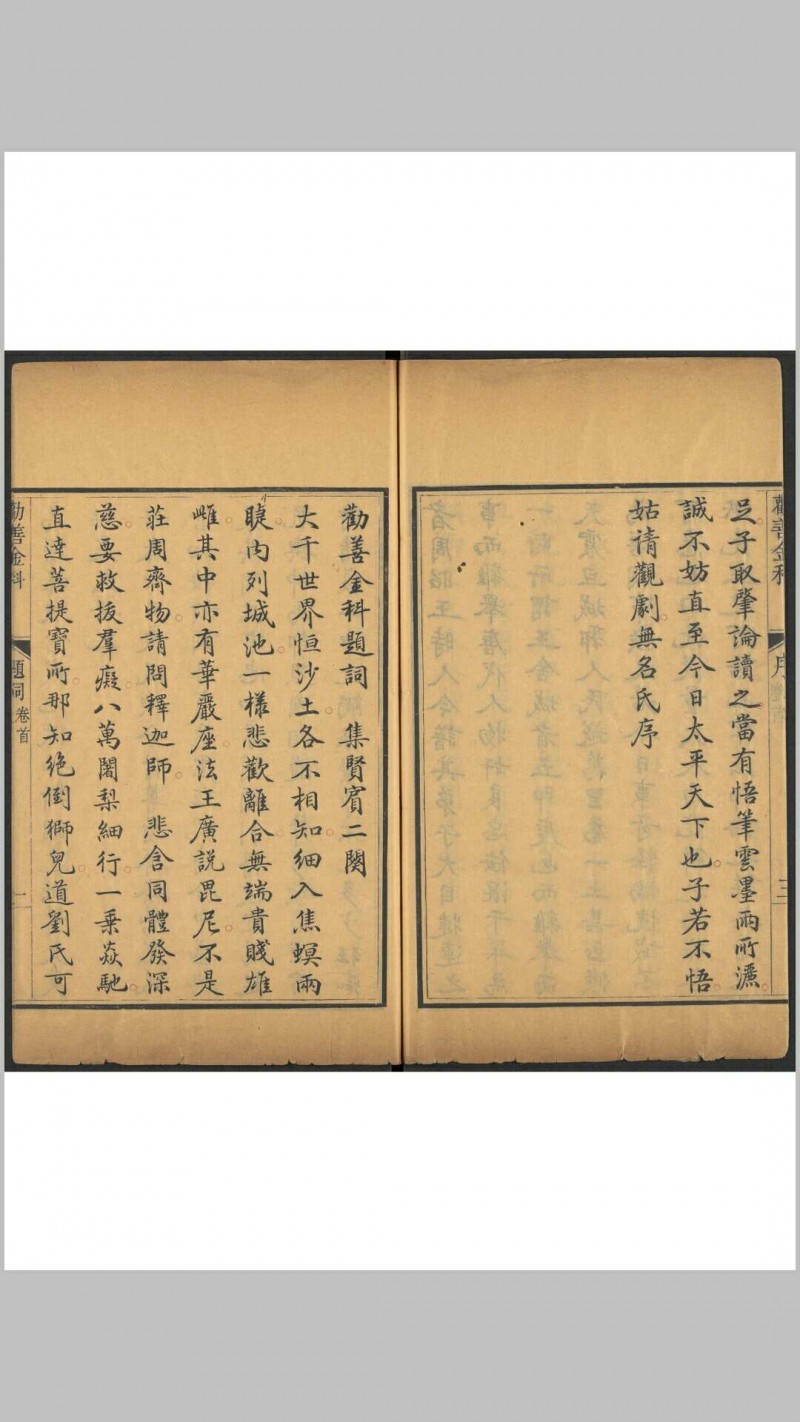 勸善金科 序 三
足子取肇論讀之當有悟筆雲墨雨所瀌
誠不妨直至今日太平天下也子若不悟
姑請觀劇無名氏序
勸善金科題詞 集賢賓二闋
大千世界恒沙土各不相知細入焦螟兩
睫內列城池一樣悲歡離合無端貴賤雄
雌其中亦有華嚴座法王廣說毘尼不是
莊周齊物請問釋迦師 悲含同體發深
慈要救拔羣癡八萬闍梨細行一乗焱馳
直達菩提寶所那知絶倒獅兒道劉氏可
勸善金科 題詞 卷首 一